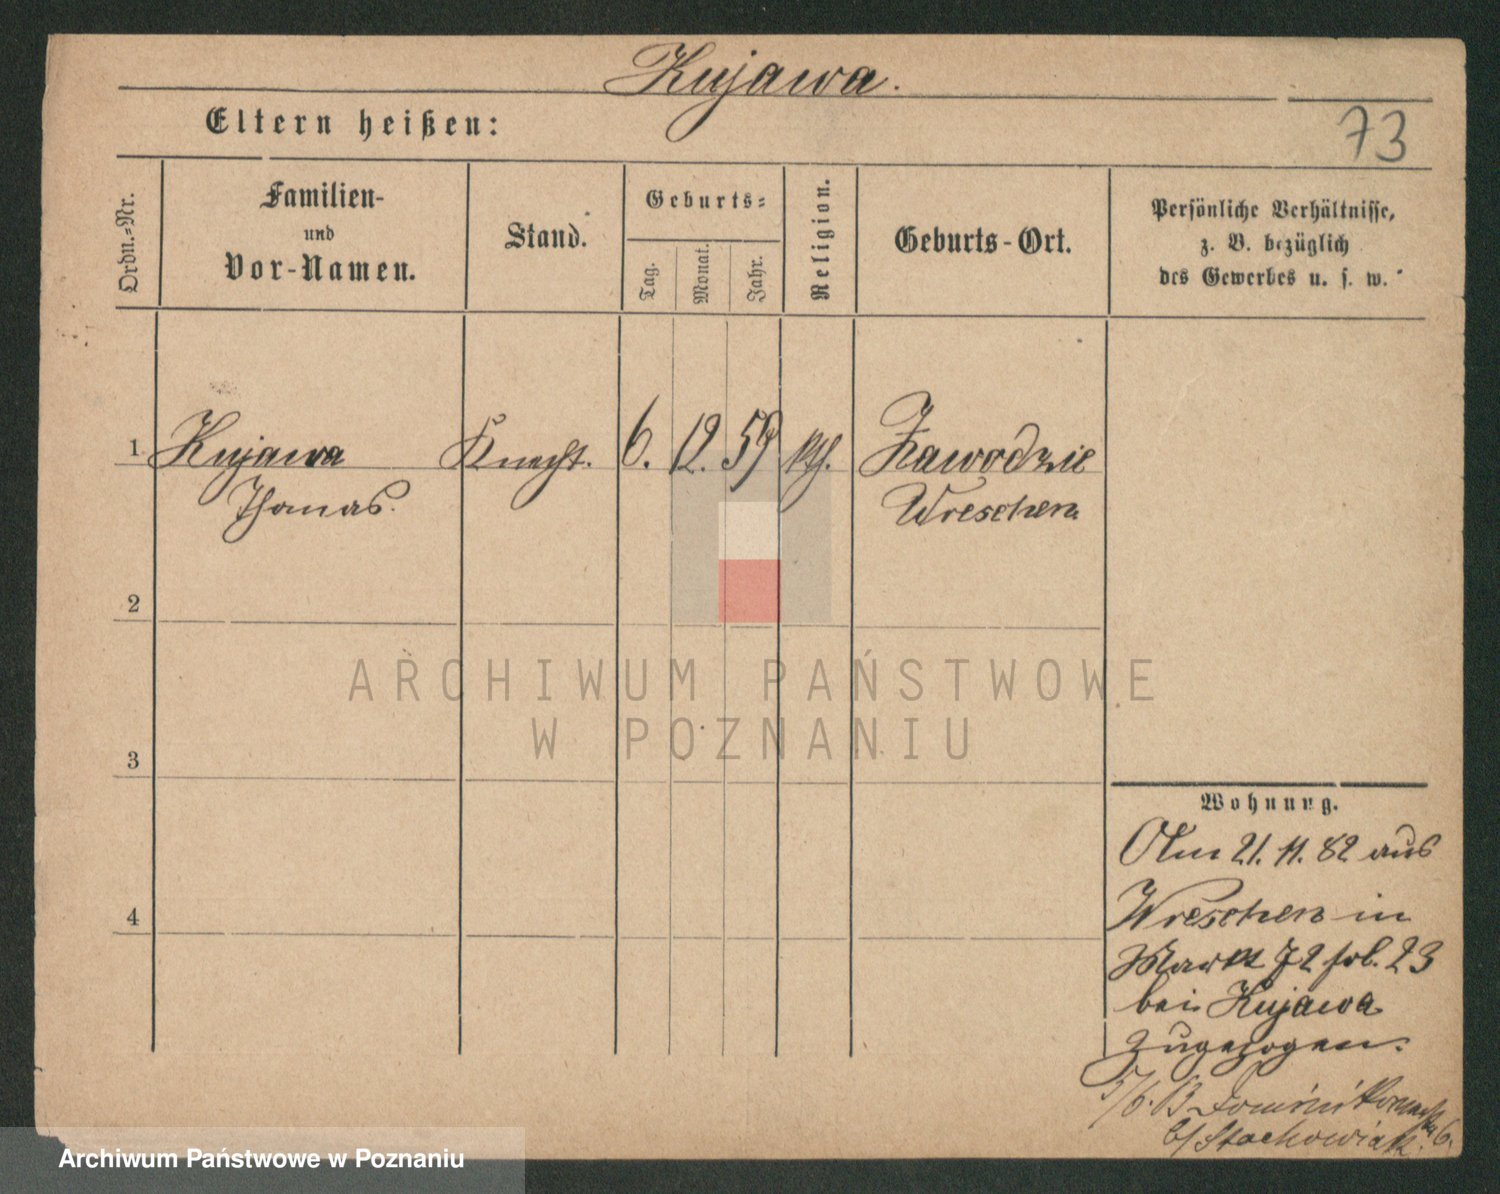 Kujawa.
Eltern heißen:
73
Ordn.=Nr.
Familien-
und
Vor-Namen.
Stand.
Geburts=
Tag.
Monat.
Jahr.
Religion.
Geburts-Ort.
Persönliche Verhältnisse,
z. B. bezüglich
des Gewerbes u. s. w.
1 Kujawa Knecht. 6. 12. 59 kth. Zawodzie
Thomas. Wreschen
2
3
4
Wohnung.
Am 21. 11. 82 aus
Wreschen in
Markt 72 fol. 23
bei Kujawa
zugezogen.
b/ Stachowiak.
ARCHIWUM PAŃSTWOWE
W POZNANIU
Archiwum Państwowe w Poznaniu